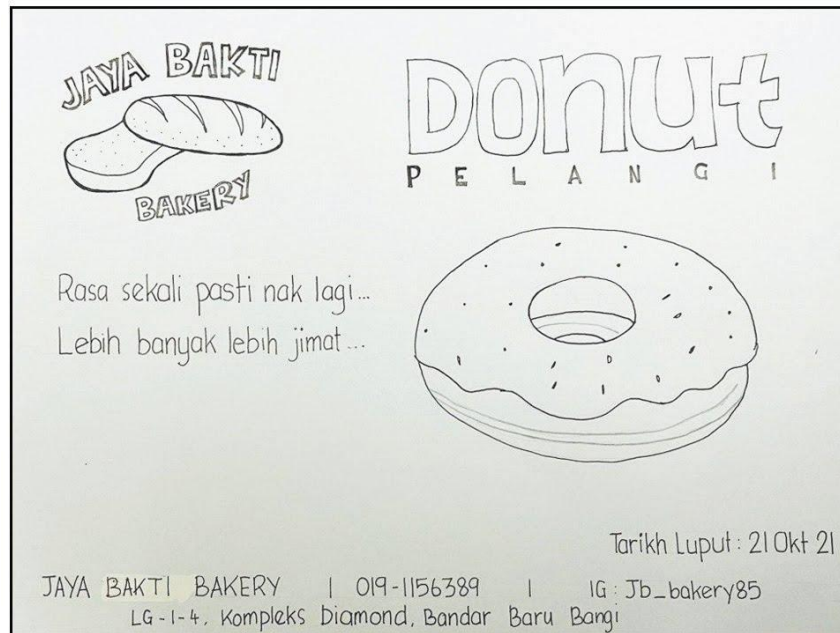 JAYA BAKTI
BAKERY
Donut
PELANGI
Rasa sekali pasti nak lagi...
Lebih banyak lebih jimat...
Tarikh Luput : 21 Okt 21
JAYA BAKTI BAKERY | 019-1156389 | IG : Jb_bakery85
LG-1-4, Kompleks Diamond, Bandar Baru Bangi